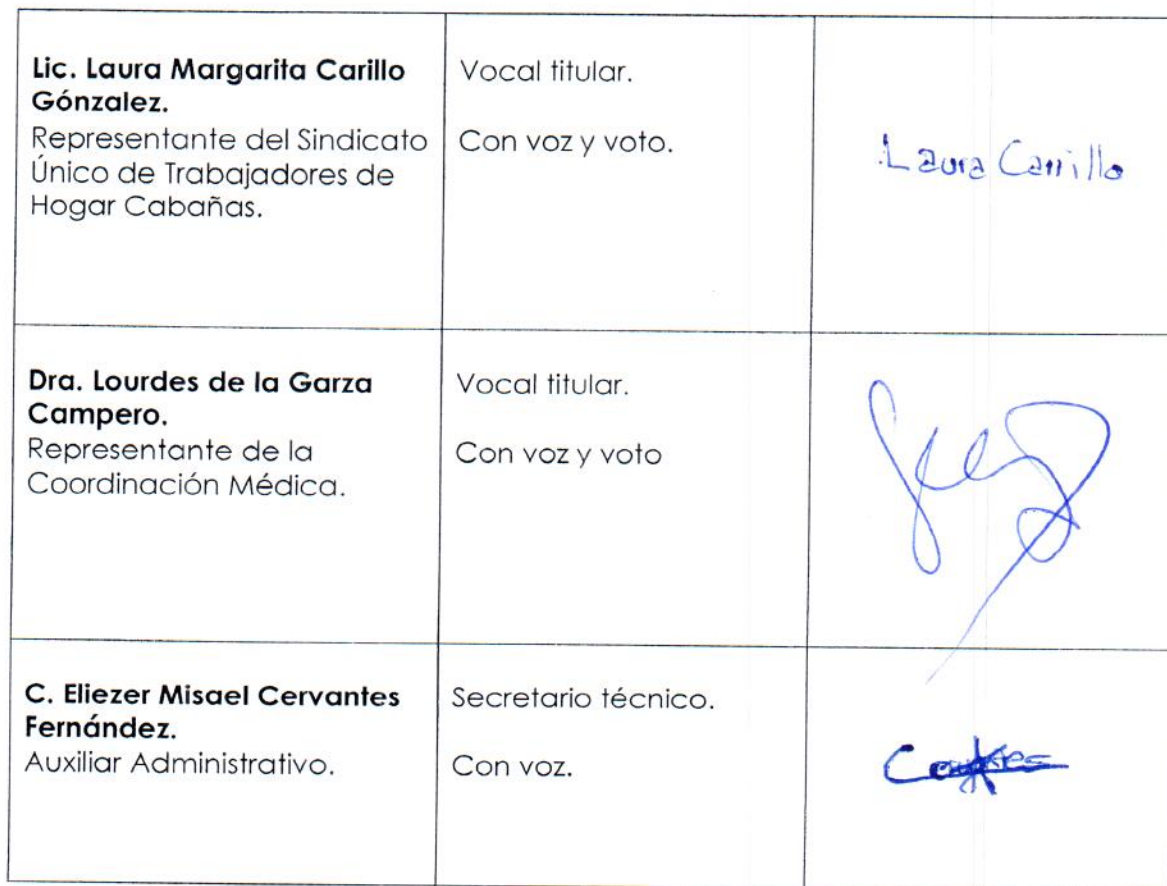 Lic. Laura Margarita Carillo
Gónzalez.
Representante del Sindicato
Único de Trabajadores de
Hogar Cabañas.
Vocal titular.
Con voz y voto.
Laura Carrillo
Dra. Lourdes de la Garza
Campero.
Representante de la
Coordinación Médica.
Vocal titular.
Con voz y voto
C. Eliezer Misael Cervantes
Fernández.
Auxiliar Administrativo.
Secretario técnico.
Con voz.